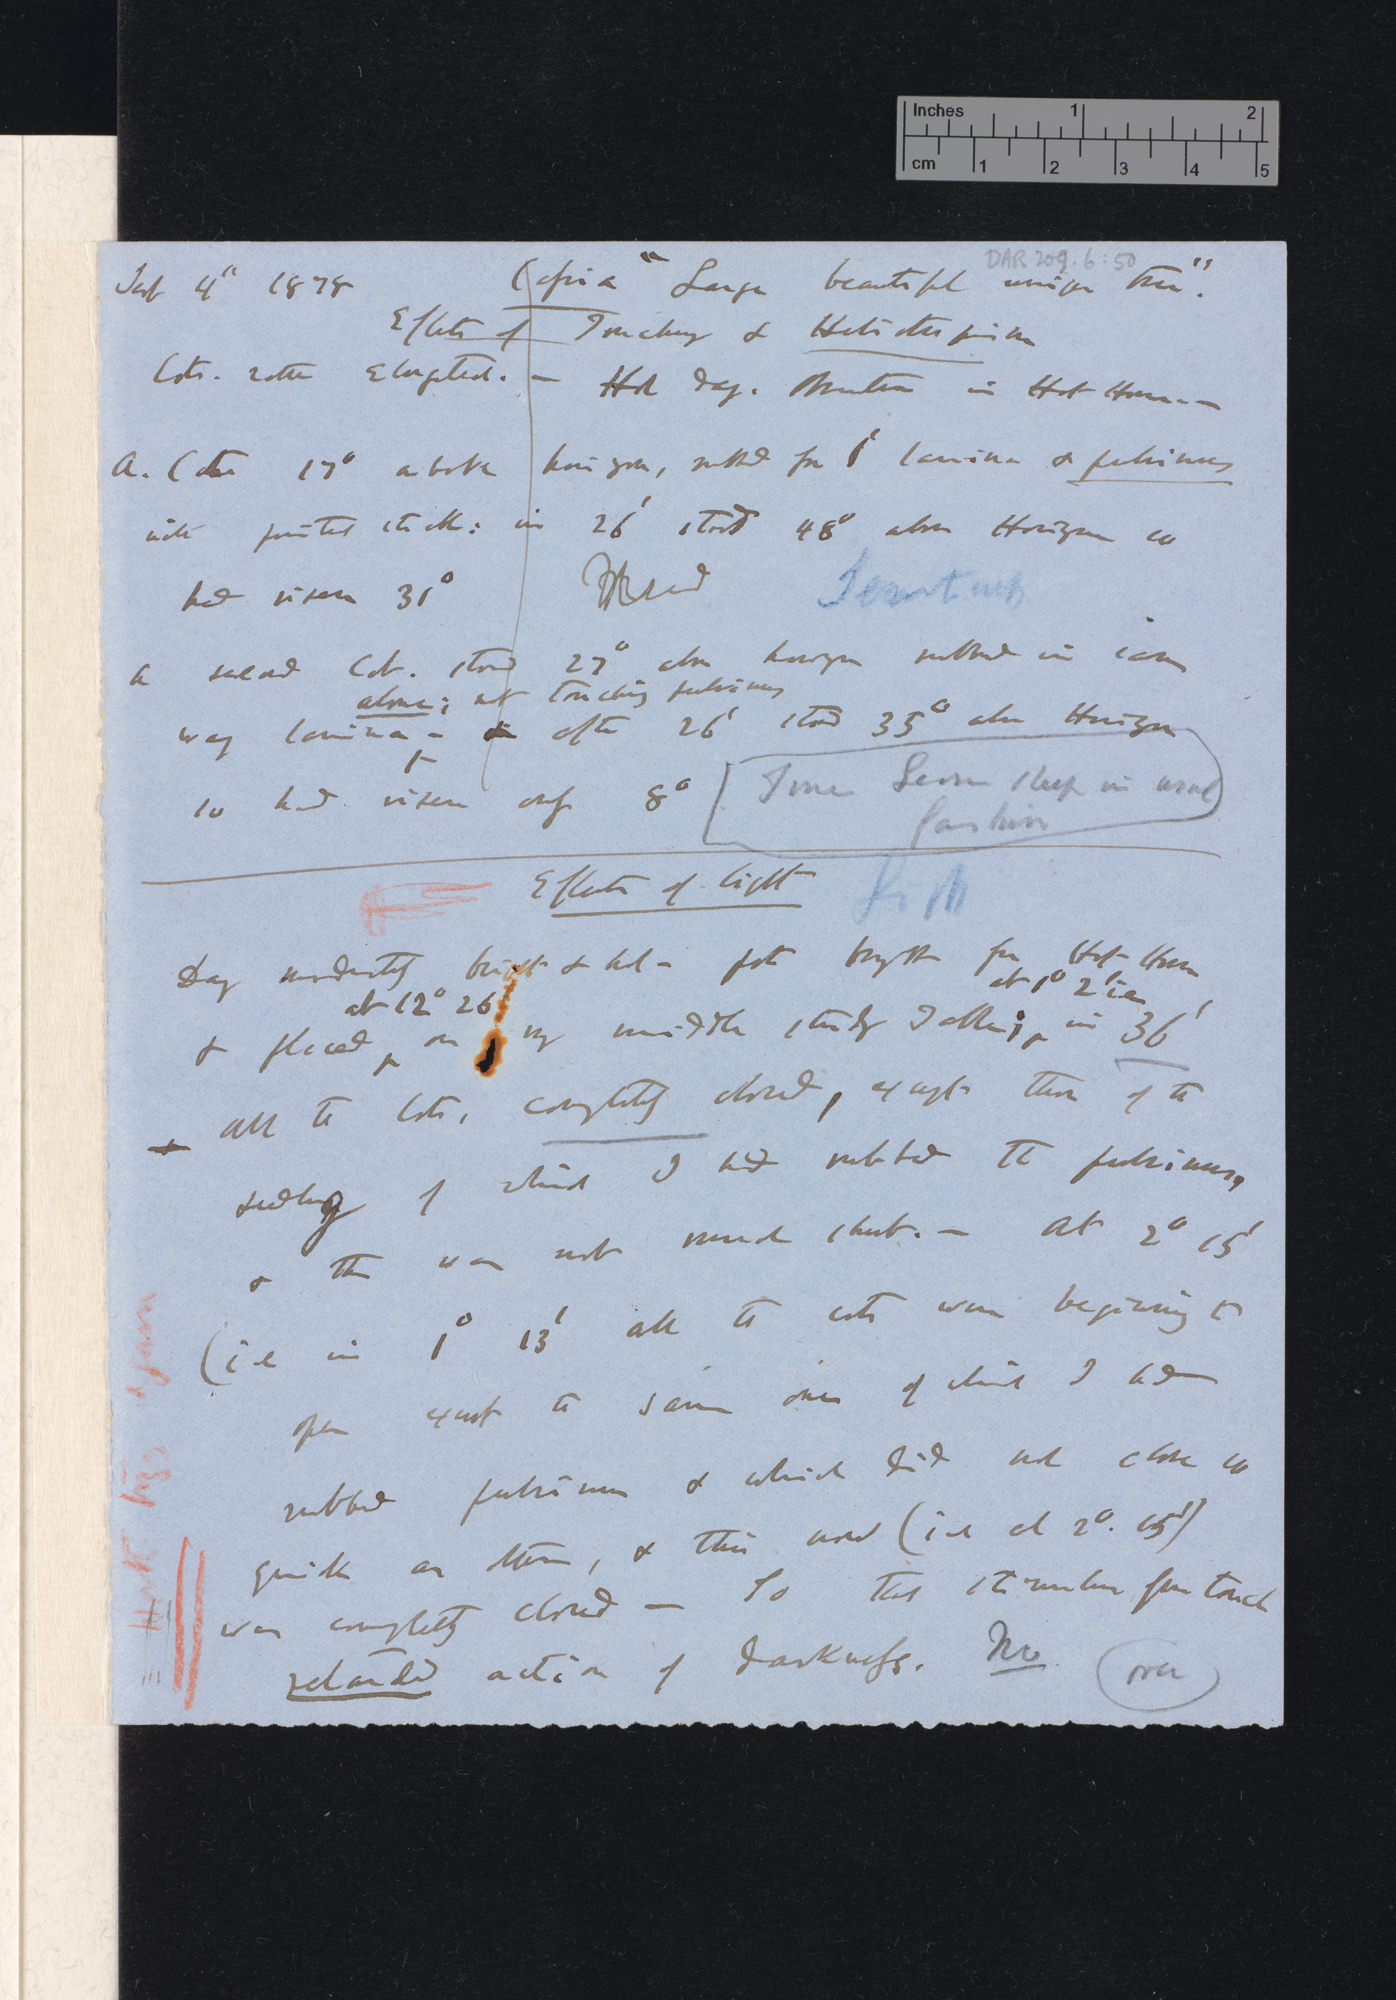 Inches 1 2
cm 1 2 3 4 5
DAR 209.6:50
4th 1878 Cassia "Large beautiful unique tree".
Effects of Touching & Heliotropism
Cots. rather elongated. — Hot day. in Hot-House. —
A. Cot 17° above horizon, rubbed for 1' lamina & pulvinus
with pointed stick: in 26' stood 48° above Horizon so
had risen 31° Used
A second Cot. stood 27° above horizon rubbed in same
alone; not touching pulvinus
way lamina — after 26' stood 35° above Horizon
so had risen only 8° sleep in usual
fashion
Effects of light Light
Day moderately bright & hot — pot brought from Hot-House
at 12° 26' at 1° 2' ie
& placed on my middle study Table; in 36'
all the Cots. completely closed, except those of the
seedling of which I had rubbed the pulvinus,
& this was not much shut. — At 2° 15'
(i.e in 1° 13' all the cots were beginning to
open except the same ones of which I had
rubbed pulvinus & which did not close so
quick as others, & this now (i.e at 2°. 15')
was completely closed — So that stimulus from touch
retarded action of darkness. No over